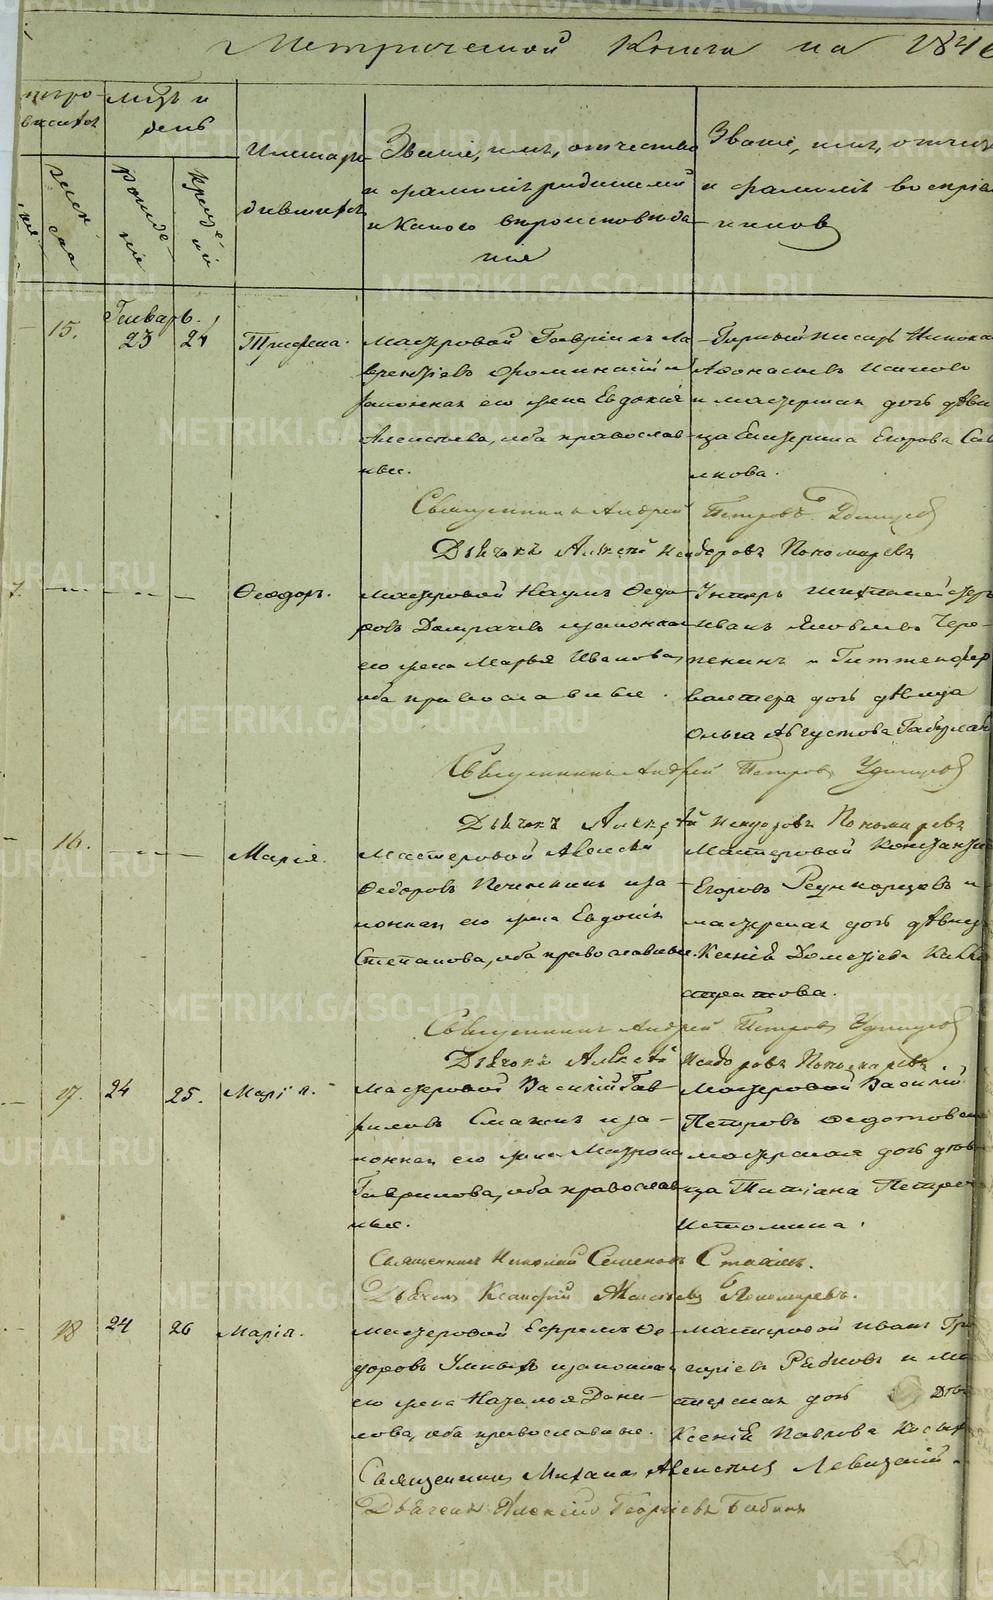 Метрической Книги на 1846
мѣсяцъ и
день
Имена ро
дившихся
Званіе, имя, отчество
и фамилія родителей
и какого вѣроисповѣда
нія
Званіе, имя, отчес
и фамилія воспріе
мниковъ
женска
рожде-
нія
креще-
нія
Генварь.
15. 23 24
Трифена.
Мастеровой Гавріилъ Ла
врентіевъ
законная его жена Евдокія
Алексѣева, оба православ
ные.
Горный писарь Никола
Афонасьевъ
и мастерская дочь дѣви
ца Екатерина Егорова
Священникъ Андрей Петровъ Удинцевъ
Дьячекъ Алексѣй Исидоровъ Пономаревъ
7.
Ѳеодоръ.
Мастеровой Наумъ Ѳедо
ровъ Домрачевъ и законная
его жена Марья Иванова,
оба православные.
Унтеръ шихтмейстеръ
Иванъ Яковлевъ Чере-
панинъ и Гиттенфер
валтера дочь дѣвица
Ольга Августова
Священникъ Андрей Петровъ Удинцевъ
Дьячекъ Алексѣй Исидоровъ Пономаревъ
16.
Марія.
Мастеровой Алексѣй
Ѳедоровъ Печенкинъ и за
конная его жена Евдокія
Степанова, оба православные.
Мастеровой Константи
Егоровъ и
мастерская дочь дѣвица
Ксенія Дометіева Кали
стратова.
Священникъ Андрей Петровъ Удинцевъ
Дьячекъ Алексѣй Исидоровъ Пономаревъ
17. 24 25. Марія.
Мастеровой Василій Гав
риловъ Смажинъ и за-
конная его жена Матрона
Гаврилова, оба православ
ные.
Мастеровой Василій
Петровъ Ѳедотовъ
мастерская дочь дѣви
ца Татіана Петрова
Истомина.
Священникъ Николай Семеновъ
Дьячекъ Ксанфій Алексѣевъ Пономаревъ.
18 24 26 Марія.
Мастеровой Ефремъ Ѳе-
доровъ Умныхъ и законная
его жена Наталья Дани-
лова, оба православные.
Мастеровой Иванъ Гри
горьевъ Рябковъ и ма
стерская дочь дѣв
Ксенія Павлова
Священникъ Михаилъ Алексѣевъ Левицкій.
Дьячекъ Алексѣй Георгіевъ Бабинъ
METRIKI.GASO-URAL.RU